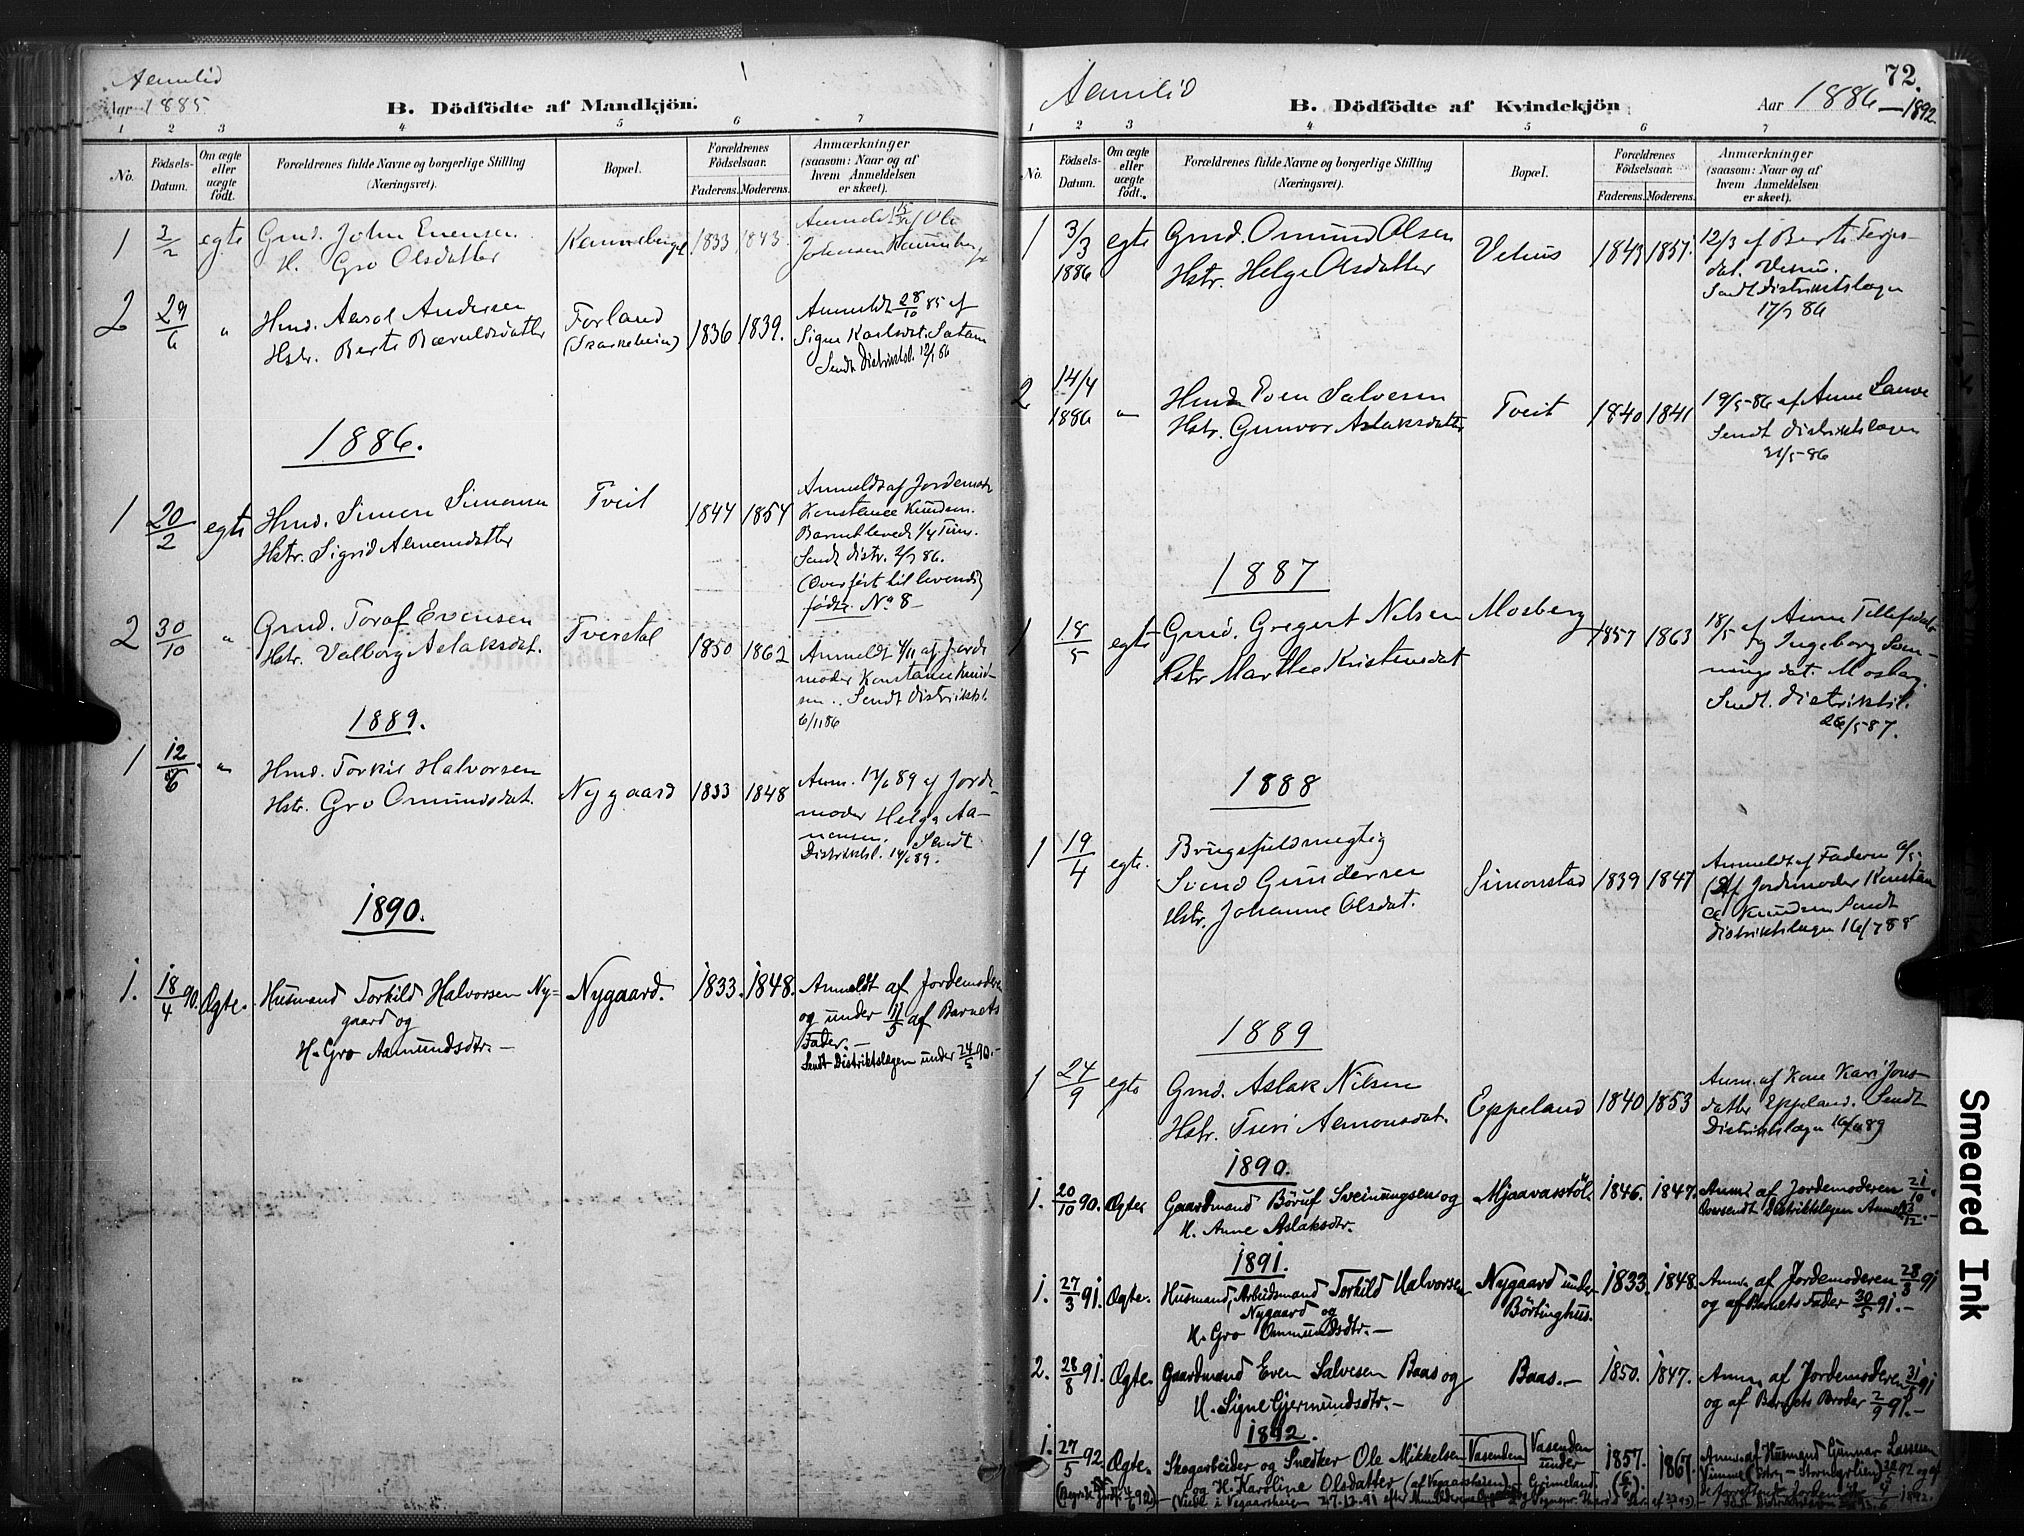 Aamlid
Aar 1885
B. Dödfödte af Mandkjön.
1 2 3 4 5 6 7
No.
Födsels-Datum.
Om ægte eller uægte födt.
Forældrenes fulde Navne og borgerlige Stilling
(Næringsvei).
Bopæl.
Forældrenes Födselsaar.
Faderens. Moderens.
Anmærkninger
(saasom: Naar og af
hvem Anmeldelsen
er skeet).
1 3/2 egte Gmd. John Evensen 1833 1843. Anmeldt af Ole
H. Gro Olsdatter Johnsen
2 29/6 " Hmd. Aasol Andersen Forland 1836 1839. Anmeldt 28/10 85 af
Hstr. Berte Bærulsdatter Signe Karlsdat.
Sendt Distriktsl.
1886.
1 20/2 egte Hmd. Simon Simonsen Tveit 1844 1854 Anmeldt af Jordemodr
Hstr. Sigrid Aamundatter Konstance Knudsen.
Barnet levede 1/4 Time.
Sendt distr. 2/3 86.
(Overført til levende
fødte. No 8 -
2 30/10 " Gmd. Toraf Evensen Tverstøl 1850 1862 Anmeldt 4/11 af Jorde
Hstr. Valborg Aslaksdat. moder Konstance Knud-
sen. Sendt distriktsl.
6/11 86
1889.
1 12/6 " Hmd. Torkil Halvorsen Nygaard 1833 1848 Anm. 13/6 89 af Jorde-
Hstr. Gro Omundsdat. moder Helga Aa-
nensen. Sendt
Distriktsl. 14/6 89.
1890.
1. 18/4 90. Ægte. Husmand Torkild Halvorsen Ny- Nygaard. 1833. 1848. Anmeldt af Jordemoderen
gaard og og under 11/5 af Barnets
H. Gro Aamundsdtr. - Fader. -
Sendt Distriktslægen under 24/5 90. -
72.
Aamlid
B. Dödfödte af Kvindekjön
Aar 1886 - 1892
1 2 3 4 5 6 7
No.
Födsels-Datum.
Om ægte eller uægte födt.
Forældrenes fulde Navne og borgerlige Stilling
(Næringsvei).
Bopæl.
Forældrenes Födselsaar.
Faderens. Moderens.
Anmærkninger
(saasom: Naar og af
hvem Anmeldelsen
er skeet).
1 3/3 1886 egte Gmd. Omund Olsen Vehus 1843 1857. 12/3 af Berte Terjes-
Hstr. Helge Olsdatter dat. Vehus.
Sendt distriktslægen
17/3 86
2 14/4 1886 " Hmd Even Salvesen Tveit 1840 1841 19/5-86 af Anne
Hstr. Gunvor Aslaksdatter Sendt distriktslægen
21/5-86
1887
1 18/5 egte Gmd. Gregert Nilsen Mosberg 1857 1863 18/5 af Anne Tellefsdatr
Hstr Marthe Kristensdat og Ingeborg Sven-
ningsdat. Mosberg.
Sendt. distriktsl.
26/5-87.
1888
1 19/4 egte. Brugsfuldmegtig
Svend Gundersen Simonstad 1839 1847 Anmeldt af Faderen
Hstr. Johanne Olsdat. (Af Jordemoder Konstan
ce Knudsen Sendt
distriktslægen 16/7 88
1889
1 24/9 egte Gmd. Aslak Nilsen Eppeland 1840 1853 Anm. af Kone Kari Jons-
Hstr. Tveri Aamonsdat. datter Eppeland. Sendt
Distriktslægen
1890.
1. 20/10 90. Ægte Gaardmand Böruf Sveinungsen og Mjaavasstöl 1846. 1847. Anm. af Jordemoderen 21/10.
H. Anne Aslaksdtr. Oversendt Distriktslægen
1891.
1. 27/3 91. Ægte. Husmand, Arbeidsmand Torkild Halvorsen Nygaard under 1833. 1848. Anm. af Jordemoderen 28/3 91
Nygaard og Börtinghus. og af Barnets Fader 30/5 91. -
H. Gro Ommundsdtr. -
2. 28/8 91. Ægte. Gaardmand Even Salvesen Baas og Baas. - 1850. 1847. Anm. af Jordemoderen 31/8 91
H. Signe Gjermundsdtr. - og af Barnets Broder 2/9 91. -
1892.
1. 27/5 92 Ægte. Skogarbeider og Snedker Ole Mikkelsen Vasenden Vasenden 1857. 1867. Anm. af Husmand Gunnar Lassesen
og H. Karoline Olsdatter under Grimeland
Smeared Ink